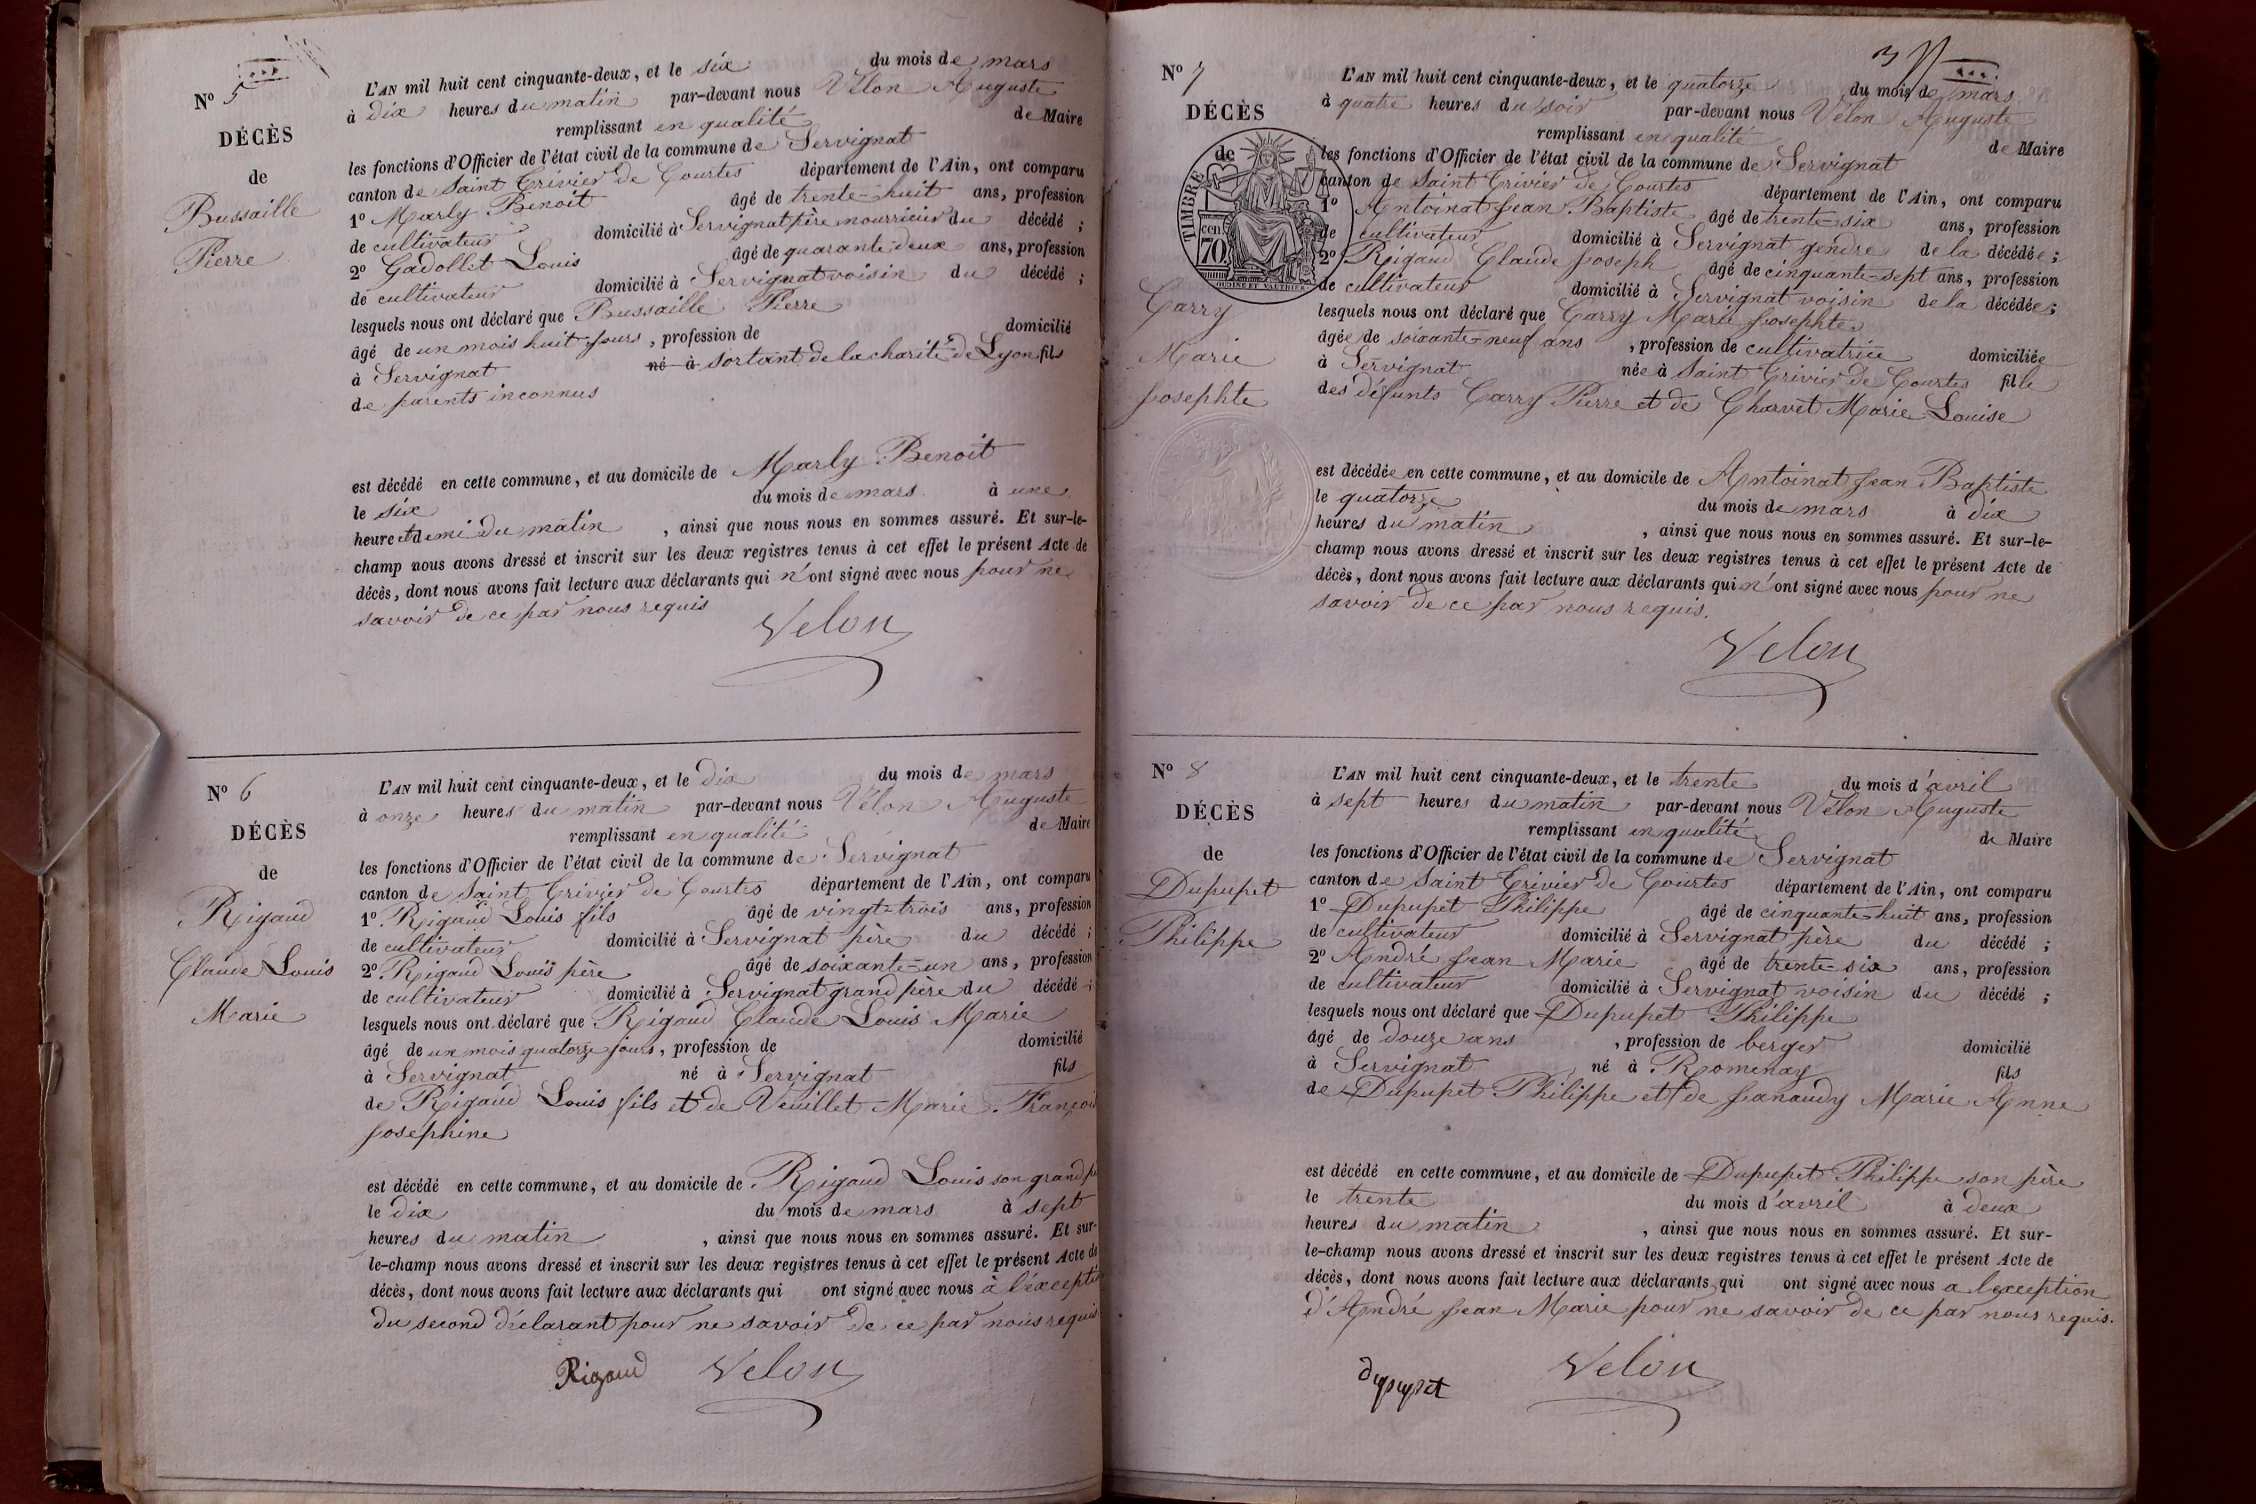 N° 5
DÉCÈS
de
Bussaille
Pierre
L'AN mil huit cent cinquante-deux, et le six du mois de mars
à dix heures du matin par-devant nous Vélon Auguste
remplissant en qualité de Maire
les fonctions d'Officier de l'état civil de la commune de Servignat
canton de Saint Trivier de Courtes département de l'Ain, ont comparu
1° Marly Benoit âgé de trente-huit ans, profession
de cultivateur domicilié à Servignat père nourricier du décédé ;
2° Gadollet Louis âgé de quarante-deux ans, profession
de cultivateur domicilié à Servignat voisin du décédé ;
lesquels nous ont déclaré que Bussaille Pierre
âgé de un mois huit jours, profession de domicilié
à Servignat né à sortant de la charité de Lyon fils
de parents inconnus
est décédé en cette commune, et au domicile de Marly Benoit
le six du mois de mars à une
heure et demi du matin, ainsi que nous nous en sommes assuré. Et sur-le-
champ nous avons dressé et inscrit sur les deux registres tenus à cet effet le présent Acte de
décès, dont nous avons fait lecture aux déclarants qui n'ont signé avec nous pour ne
savoir de ce par nous requis
Velon
N° 6
DÉCÈS
de
Rigaud
Claude Louis
Marie
L'AN mil huit cent cinquante-deux, et le dix du mois de mars
à onze heures du matin par-devant nous Vélon Auguste
remplissant en qualité de Maire
les fonctions d'Officier de l'état civil de la commune de Servignat
canton de Saint Trivier de Courtes département de l'Ain, ont comparu
1° Rigaud Louis fils âgé de vingt-trois ans, profession
de cultivateur domicilié à Servignat père du décédé ;
2° Rigaud Louis père âgé de soixante-un ans, profession
de cultivateur domicilié à Servignat grand père du décédé ;
lesquels nous ont déclaré que Rigaud Claude Louis Marie
âgé de un mois quatorze jours, profession de domicilié
à Servignat né à Servignat fils
de Rigaud Louis fils et de Veuillet Marie Françoi
Josephine
est décédé en cette commune, et au domicile de Rigaud Louis son grand p
le dix du mois de mars à sept
heures du matin, ainsi que nous nous en sommes assuré. Et sur-
le-champ nous avons dressé et inscrit sur les deux registres tenus à cet effet le présent Acte de
décès, dont nous avons fait lecture aux déclarants qui ont signé avec nous à l'excepti
du second déclarant pour ne savoir de ce par nous requis
Rigaud Velon
3
N° 7
DÉCÈS
de
TIMBRE
cen
70
OUDINE ET VAUTHIER
Carry
Marie
Josephte
L'AN mil huit cent cinquante-deux, et le quatorze du mois de mars
à quatre heures du soir par-devant nous Vélon Auguste
remplissant en qualité de Maire
les fonctions d'Officier de l'état civil de la commune de Servignat
canton de Saint Trivier de Courtes département de l'Ain, ont comparu
1° Antoinat Jean Baptiste âgé de trente-six ans, profession
de cultivateur domicilié à Servignat gendre de la décédée ;
2° Rigaud Claude Joseph âgé de cinquante-sept ans, profession
de cultivateur domicilié à Servignat voisin de la décédée ;
lesquels nous ont déclaré que Carry Marie Josephte
âgée de soixante-neuf ans, profession de cultivatrice domiciliée
à Servignat née à Saint Trivier de Courtes fille
des défunts Carry Pierre et de Charvet Marie Louise
est décédée en cette commune, et au domicile de Antoinat Jean Baptiste
le quatorze du mois de mars à dix
heures du matin, ainsi que nous nous en sommes assuré. Et sur-le-
champ nous avons dressé et inscrit sur les deux registres tenus à cet effet le présent Acte de
décès, dont nous avons fait lecture aux déclarants qui n'ont signé avec nous pour ne
savoir de ce par nous requis.
Velon
N° 8
DÉCÈS
de
Dupupet
Philippe
L'AN mil huit cent cinquante-deux, et le trente du mois d'avril
à sept heures du matin par-devant nous Vélon Auguste
remplissant en qualité de Maire
les fonctions d'Officier de l'état civil de la commune de Servignat
canton de Saint Trivier de Courtes département de l'Ain, ont comparu
1° Dupupet Philippe âgé de cinquante-huit ans, profession
de cultivateur domicilié à Servignat père du décédé ;
2° André Jean Marie âgé de trente-six ans, profession
de cultivateur domicilié à Servignat voisin du décédé ;
lesquels nous ont déclaré que Dupupet Philippe
âgé de douze ans, profession de berger domicilié
à Servignat né à Romenay fils
de Dupupet Philippe et de Janaudy Marie Anne
est décédé en cette commune, et au domicile de Dupupet Philippe son père
le trente du mois d'avril à deux
heures du matin, ainsi que nous nous en sommes assuré. Et sur-
le-champ nous avons dressé et inscrit sur les deux registres tenus à cet effet le présent Acte de
décès, dont nous avons fait lecture aux déclarants qui ont signé avec nous a l'exception
d'André Jean Marie pour ne savoir de ce par nous requis.
dupupet Velon